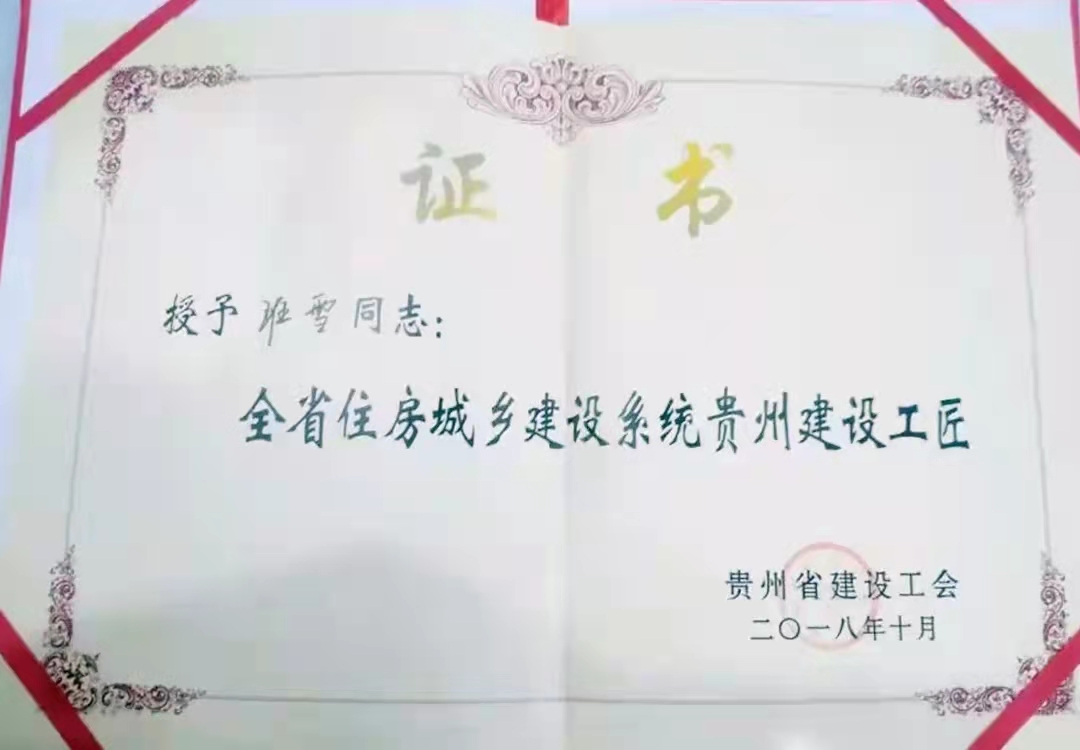 证书
授予班雪同志：
全省住房城乡建设系统贵州建设工匠
贵州省建设工会
二〇一八年十月